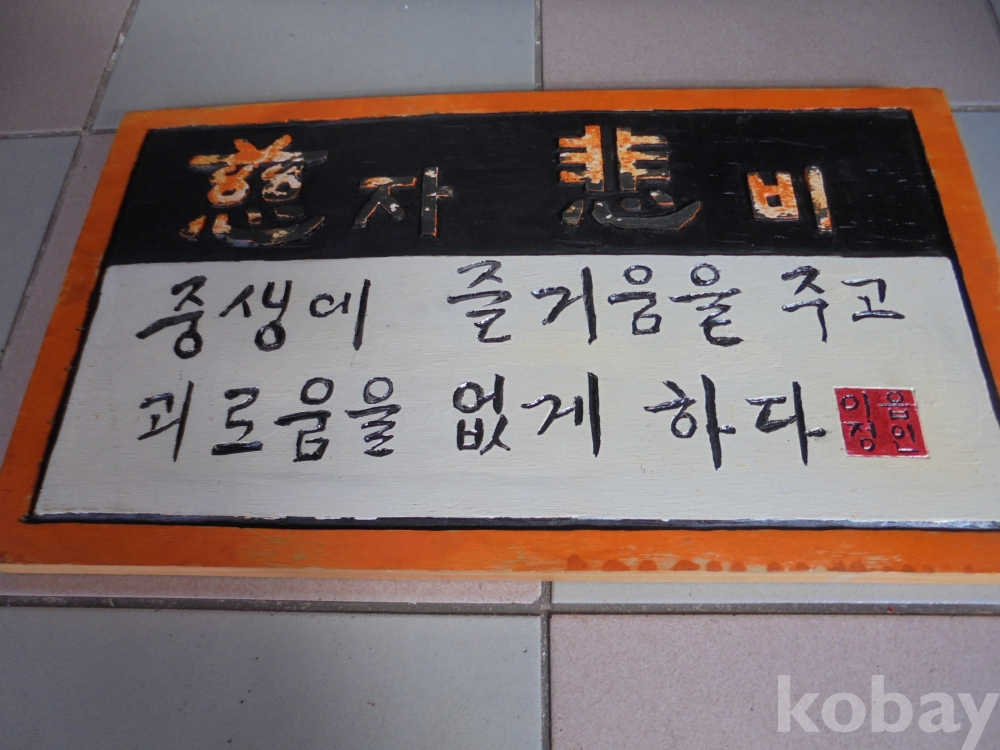 慈자 悲비
중생에 즐거움을 주고
괴로움을 없게 하다
이음
정인
kobay